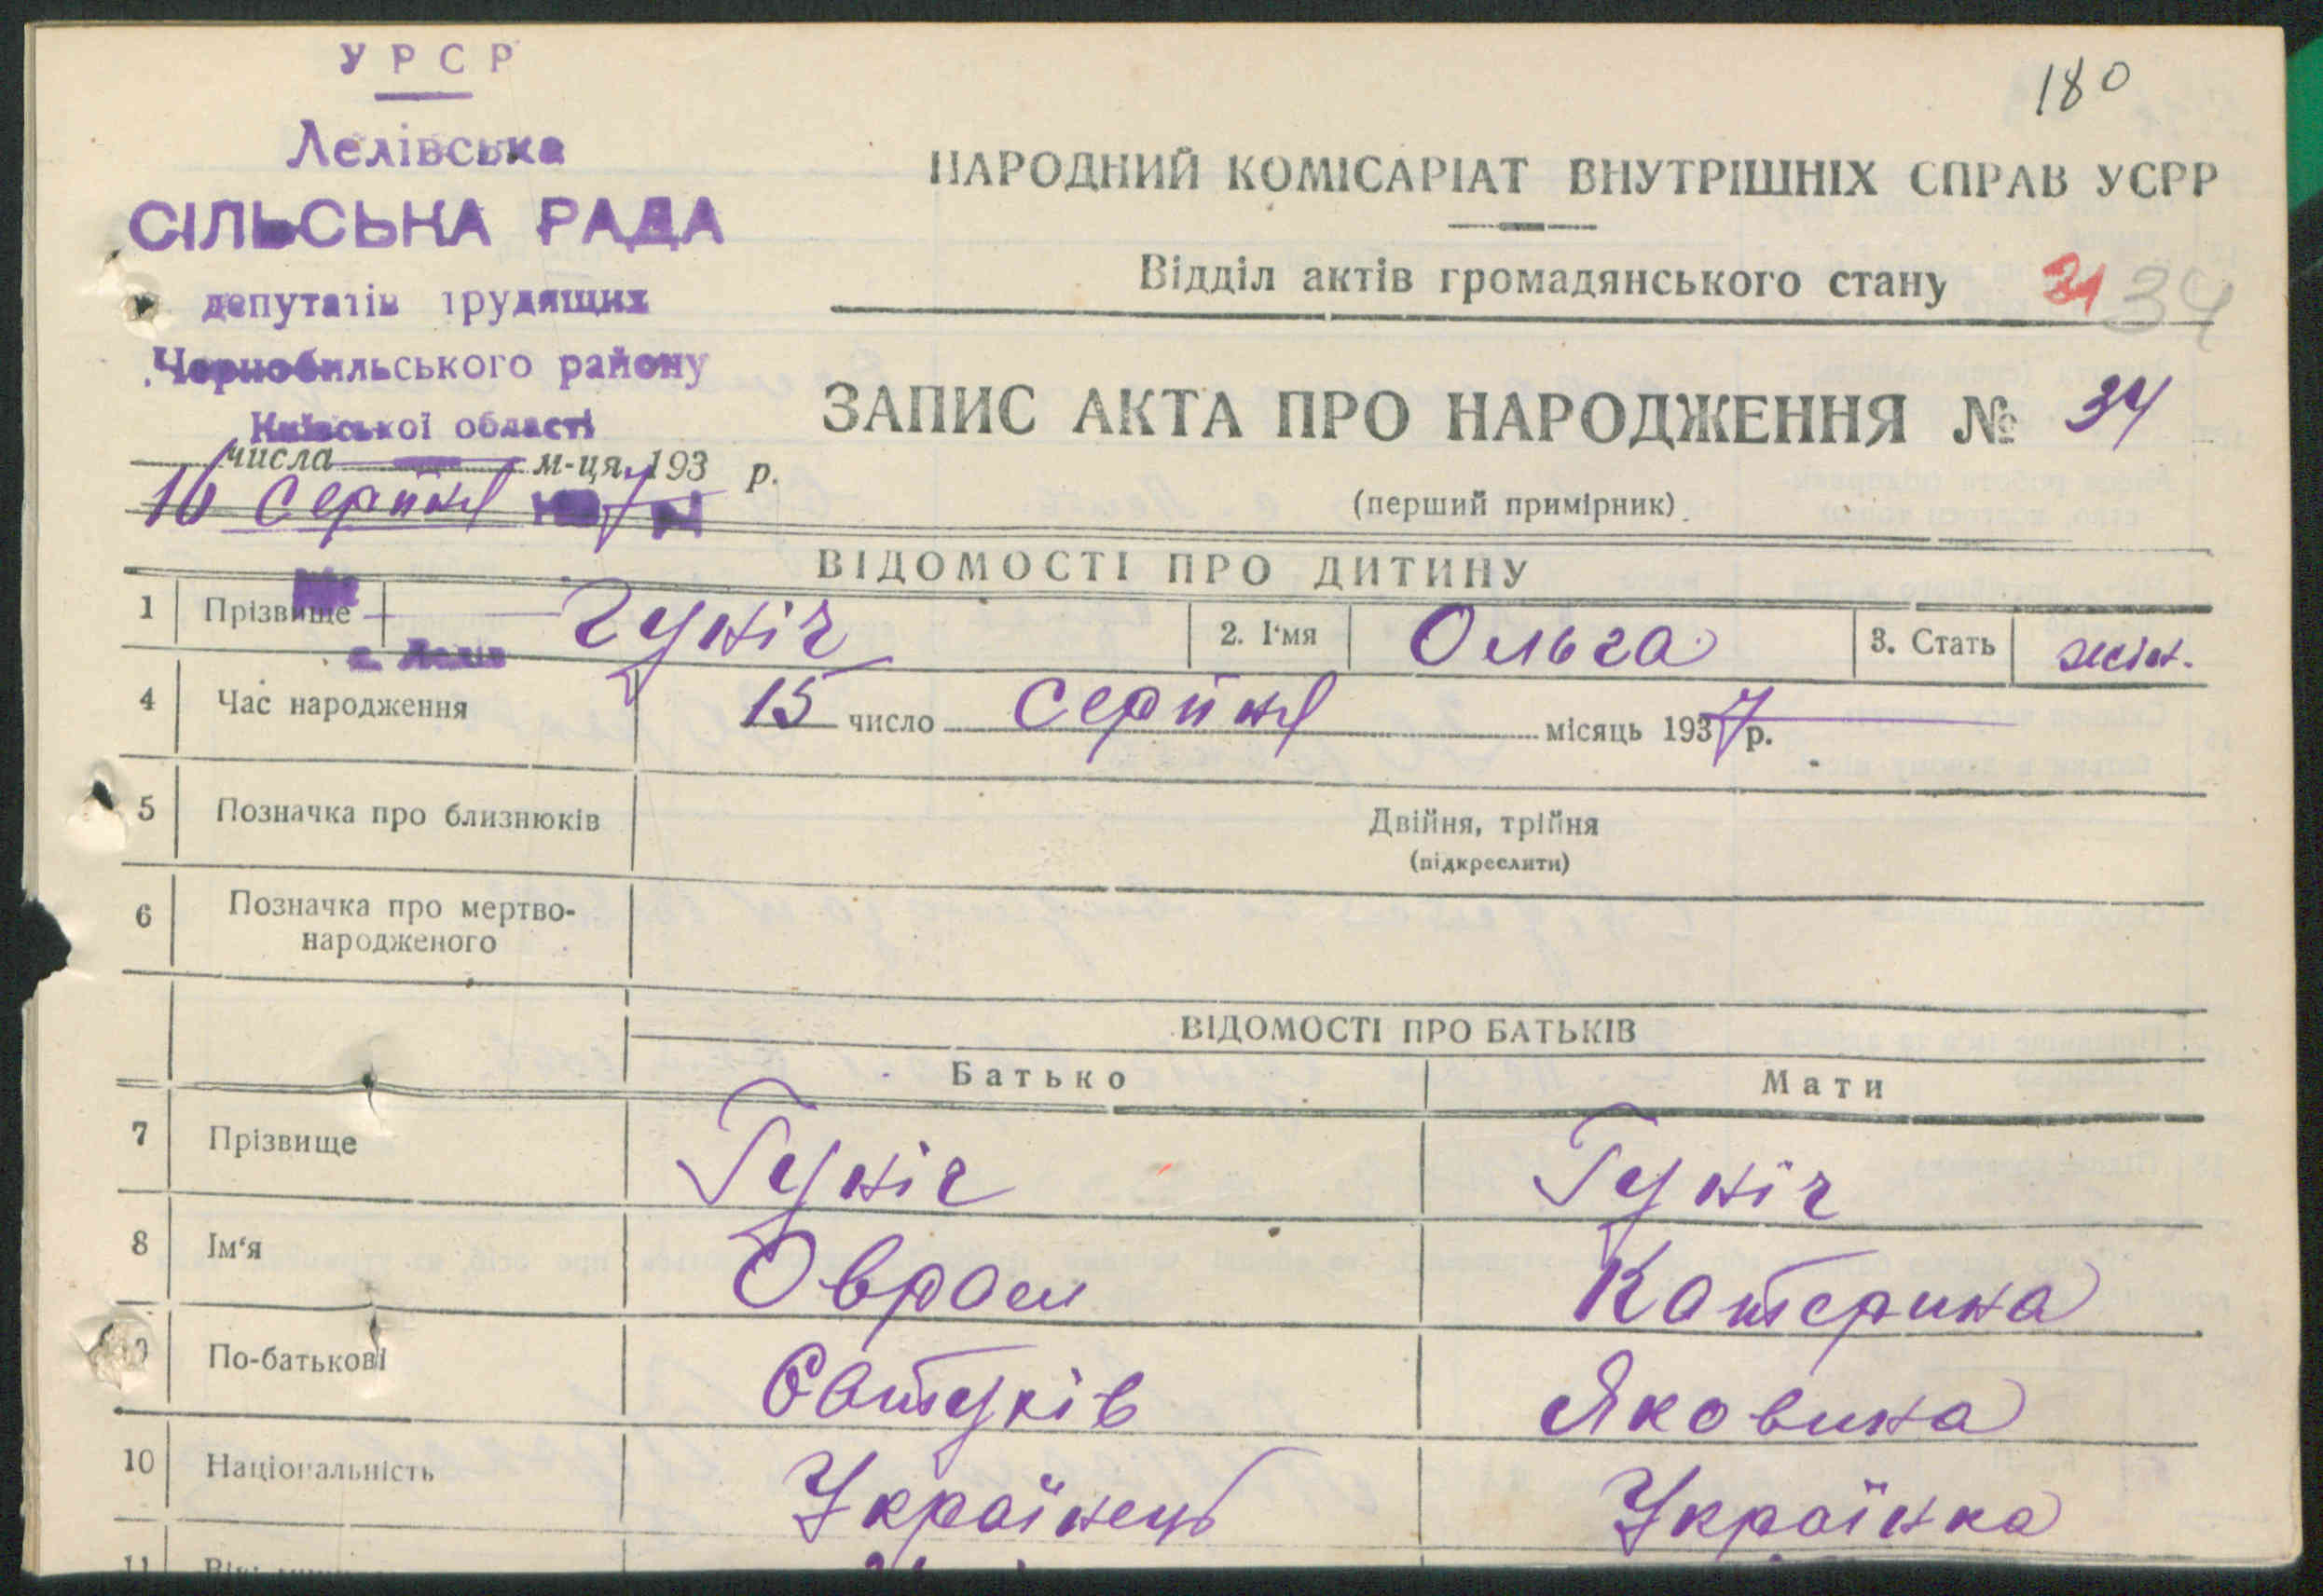 180
УРСР
Лелівська
СІЛЬСЬКА РАДА
депутатів трудящих
Чорнобильського району
Київської області
числа м-ця 193 р.
16 Серпня 7
НАРОДНИЙ КОМІСАРІАТ ВНУТРІШНІХ СПРАВ УСРР
Відділ актів громадянського стану 31 34
ЗАПИС АКТА ПРО НАРОДЖЕННЯ № 34
(перший примірник)
ВІДОМОСТІ ПРО ДИТИНУ
1 Прізвище Гуніч 2. І'мя Ольга 3. Стать жін.
с. Лелів
4 Час народження 15 число Серпня місяць 1937 р.
5 Позначка про близнюків Двійня, трійня
(підкреслити)
6 Позначка про мертво-
народженого
ВІДОМОСТІ ПРО БАТЬКІВ
Батько Мати
7 Прізвище Гуніч Гуніч
8 Ім'я Оврам Катерина
9 По-батькові Євтухів Яковина
10 Національність Українець Українка
11